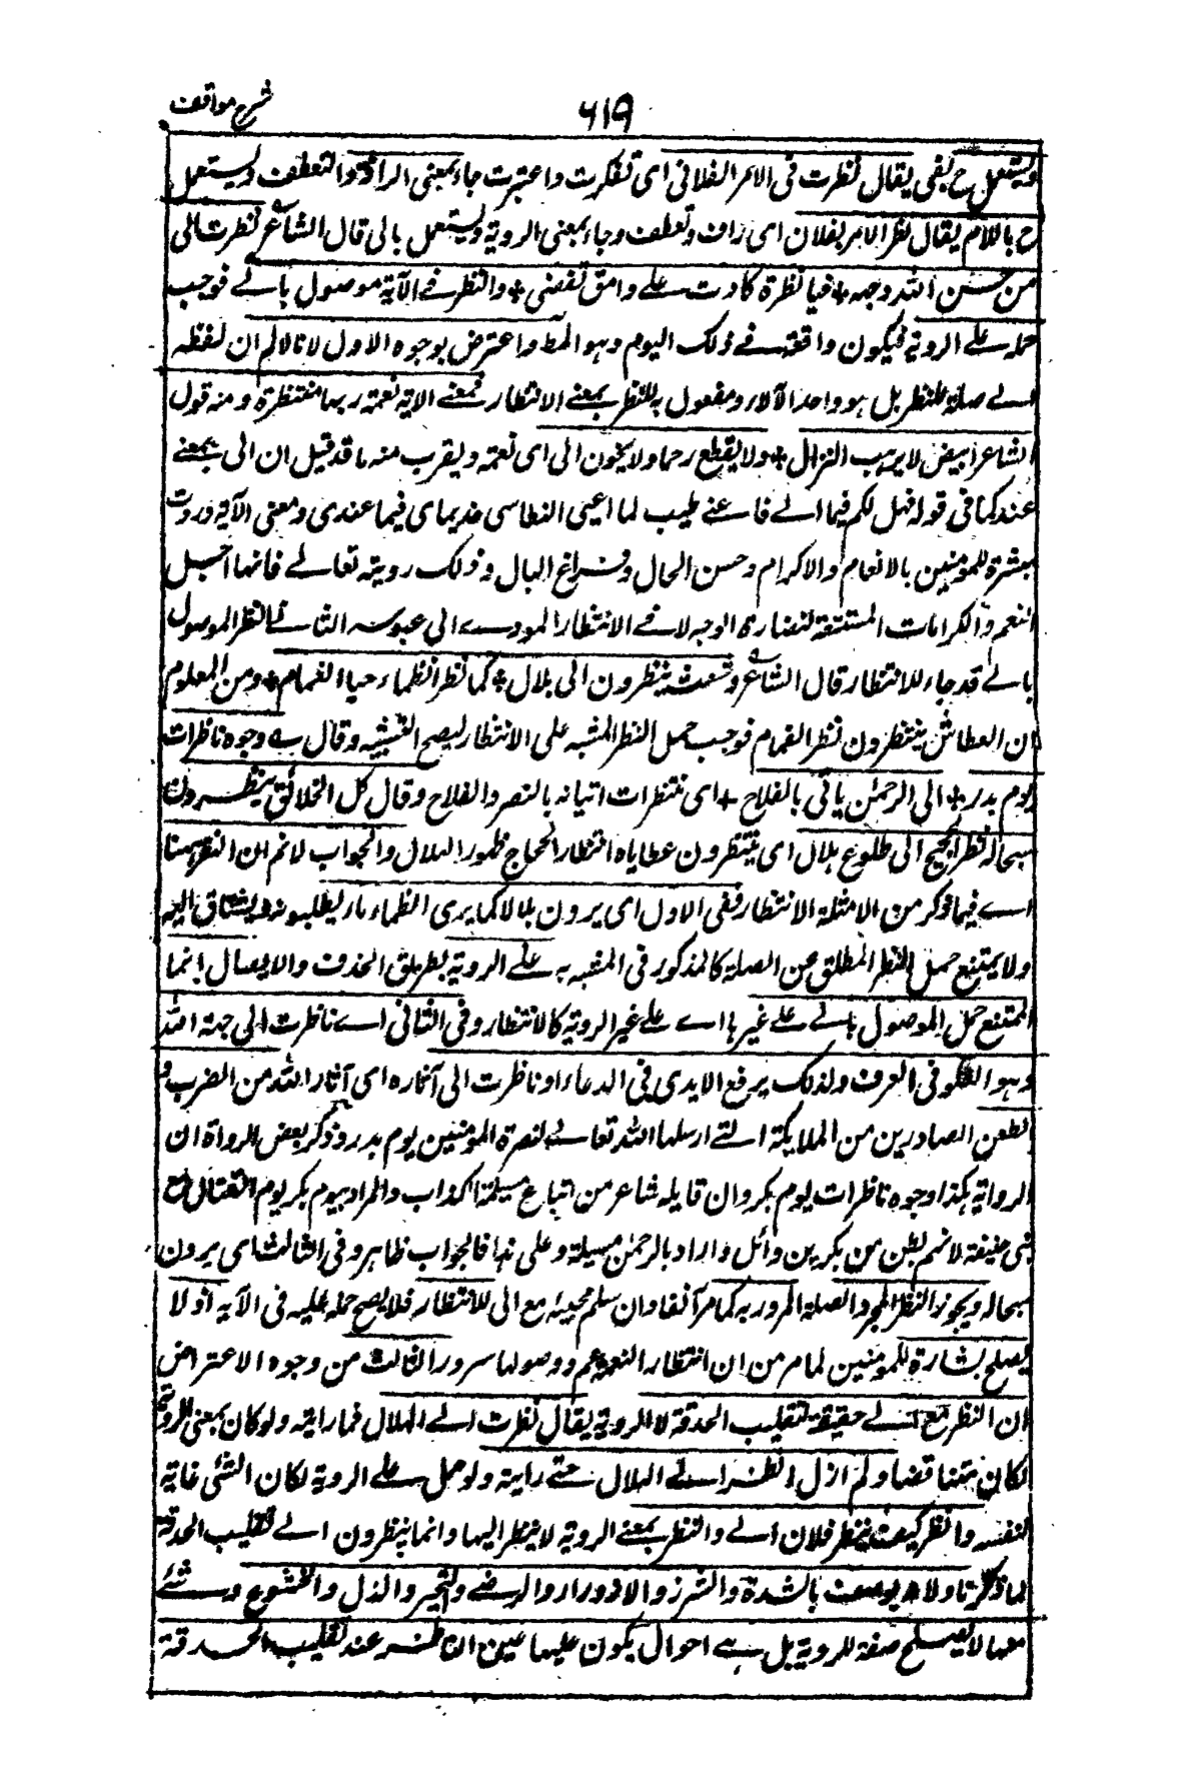 شرح مواقف
٦١٩
ويستعمل ح بفى يقال نظرت فى الامر الفلانى اى تفكرت واعتبرت جاء بمعنى الرافة والتعطف ويستعمل
ح باللام يقال نظر الامير لفلان اى راف وتعطف وجاء بمعنى الروية ويستعمل بالى قال الشاعر نظرت الى
من حسن الله وجهه + فيا نظرة كادت على وامق تقضى + والنظر فى الآية موصول بالى فوجب
حمله على الروية فيكون واقعة فى ذلك اليوم وهو المط واعترض بوجوه الاول لانا لانم ان لفظه
الى صلة للنظر بل هو واحد الآلاء ومفعول به للنظر بمعنى الانتظار فمعنى الاية نعمة ربها منتظرة ومنه قول
الشاعر ابيض لا يرهب النزال + ولا يقطع رحما ولا يخون الى اى نعمة ويقرب منه ما قد قيل ان الى بمعنى
عند كما فى قوله فهل لكم فيما الى فاننى طبيب لما اعيى النطاسى حذيما اى فيما عندى ومعنى الآية وردت
مبشرة للمؤمنين بالانعام والاكرام وحسن الحال وفراغ البال وذلك رويته تعالى فانها اجل
النعم والكرامات المستتبعة لنضارة الوجه لا فى الانتظار المودى الى عبوسه الثانى النظر الموصول
بالى قد جاء للانتظار قال الشاعر وشعث ينظرون الى بلال + كما نظر الظماء حيا الغمام + ومن المعلوم
ان العطاش ينتظرون نظر الغمام فوجب حمل النظر المشبه على الانتظار ليصح التشبيه وقال ع وجوه ناظرات
يوم بدر + الى الرحمن ياتى بالفلاح + اى منتظرات اتيانه بالنصر والفلاح وقال كل الخلائق ينظرون
سجاله نظر الحجيج الى طلوع هلال اى ينتظرون عطاياه انتظار الحجاج ظهور الهلال والجواب لا نم ان النظر ههنا
اى فيما ذكر من الامثلة الانتظار ففى الاول اى يرون بلالا كما يرى الظماء ماء يطلبونه ويشتاق اليه
ولا يمتنع حمل النظر المطلق عن الصلة كالمذكور فى المشبه به على الروية بطريق الحذف والايصال انما
الممتنع حمل الموصول بالى على غيرها اى على غير الروية كالانتظار وفى الثانى اى ناظرات الى جهة الله
وهو العلو فى العرف ولذلك يرفع الايدى فى الدعاء او ناظرات الى آثاره اى آثار الله من الضرب و
الطعن الصادرين من الملايكة التى ارسلها الله تعالى لنصرة المؤمنين يوم بدر وذكر بعض الرواة ان
الرواية هكذا وجوه ناظرات يوم بكر وان قايله شاعر من اتباع مسيلمة الكذاب والمراد بيوم بكر يوم القتال مع
بنى حنيفة لانهم بطن من بكر بن وائل واراد بالرحمن مسيلمة وعلى هذا فالجواب ظاهر وفى الثالث اى يرون
سجاله ويجوز النظر المجرد الصلة المرور به كما مر آنفا وان سلم مجيئه مع الى للانتظار فلا يصح حمله عليه فى الآية اذ لا
يصلح بشارة للمؤمنين لما مر من ان انتظار النعمة غم ووصولها سرور الثالث من وجوه الاعتراض
ان النظر مع الى حقيقة لتقليب الحدقة لا للروية يقال نظرت الى الهلال فما رايته ولو كان بمعنى الروية
لكان متناقضا ولم ازل انظر الى الهلال حتى رايته ولو حمل على الروية لكان الشئ غاية
لنفسه وانظر كيف ينظر فلان الى والنظر بمعنى الروية لا ينظر اليها وانما ينظرون الى تقليب الحدقة
لما ذكرنا ولانه يوصف بالشدة والشزر والازورار والرضى والتجبر والذل والخشوع وشئ
منها لا يصلح صفة للروية بل هى احوال يكون عليها عين الناظر عند تقليب الحدقة